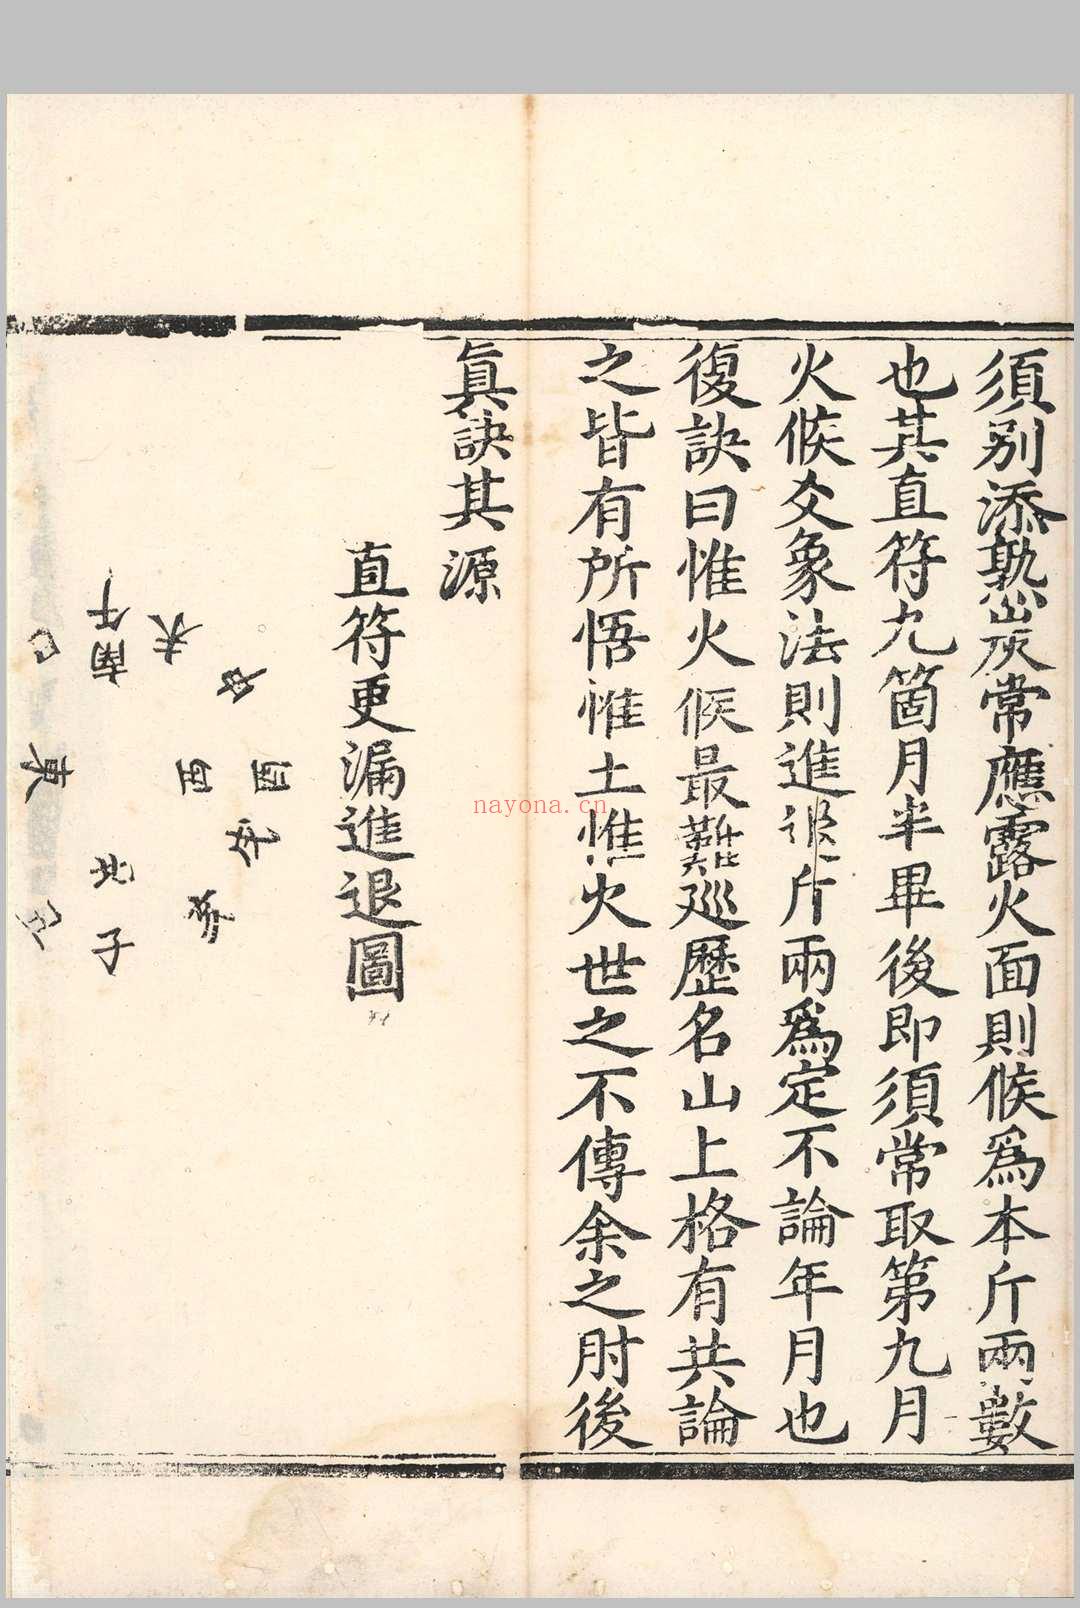 須別添熟炭灰常應露火面則候爲本斤兩數
也其直符九箇月半畢後即須常取第九月
火候爻象法則進退斤兩爲定不論年月也
復訣曰惟火候最難廵歷名山上格有共論
之皆有所悟惟土惟火世之不傳余之肘後
眞訣其源
直符更漏進退圖
未
南午
東
西
北子
nayona.cn